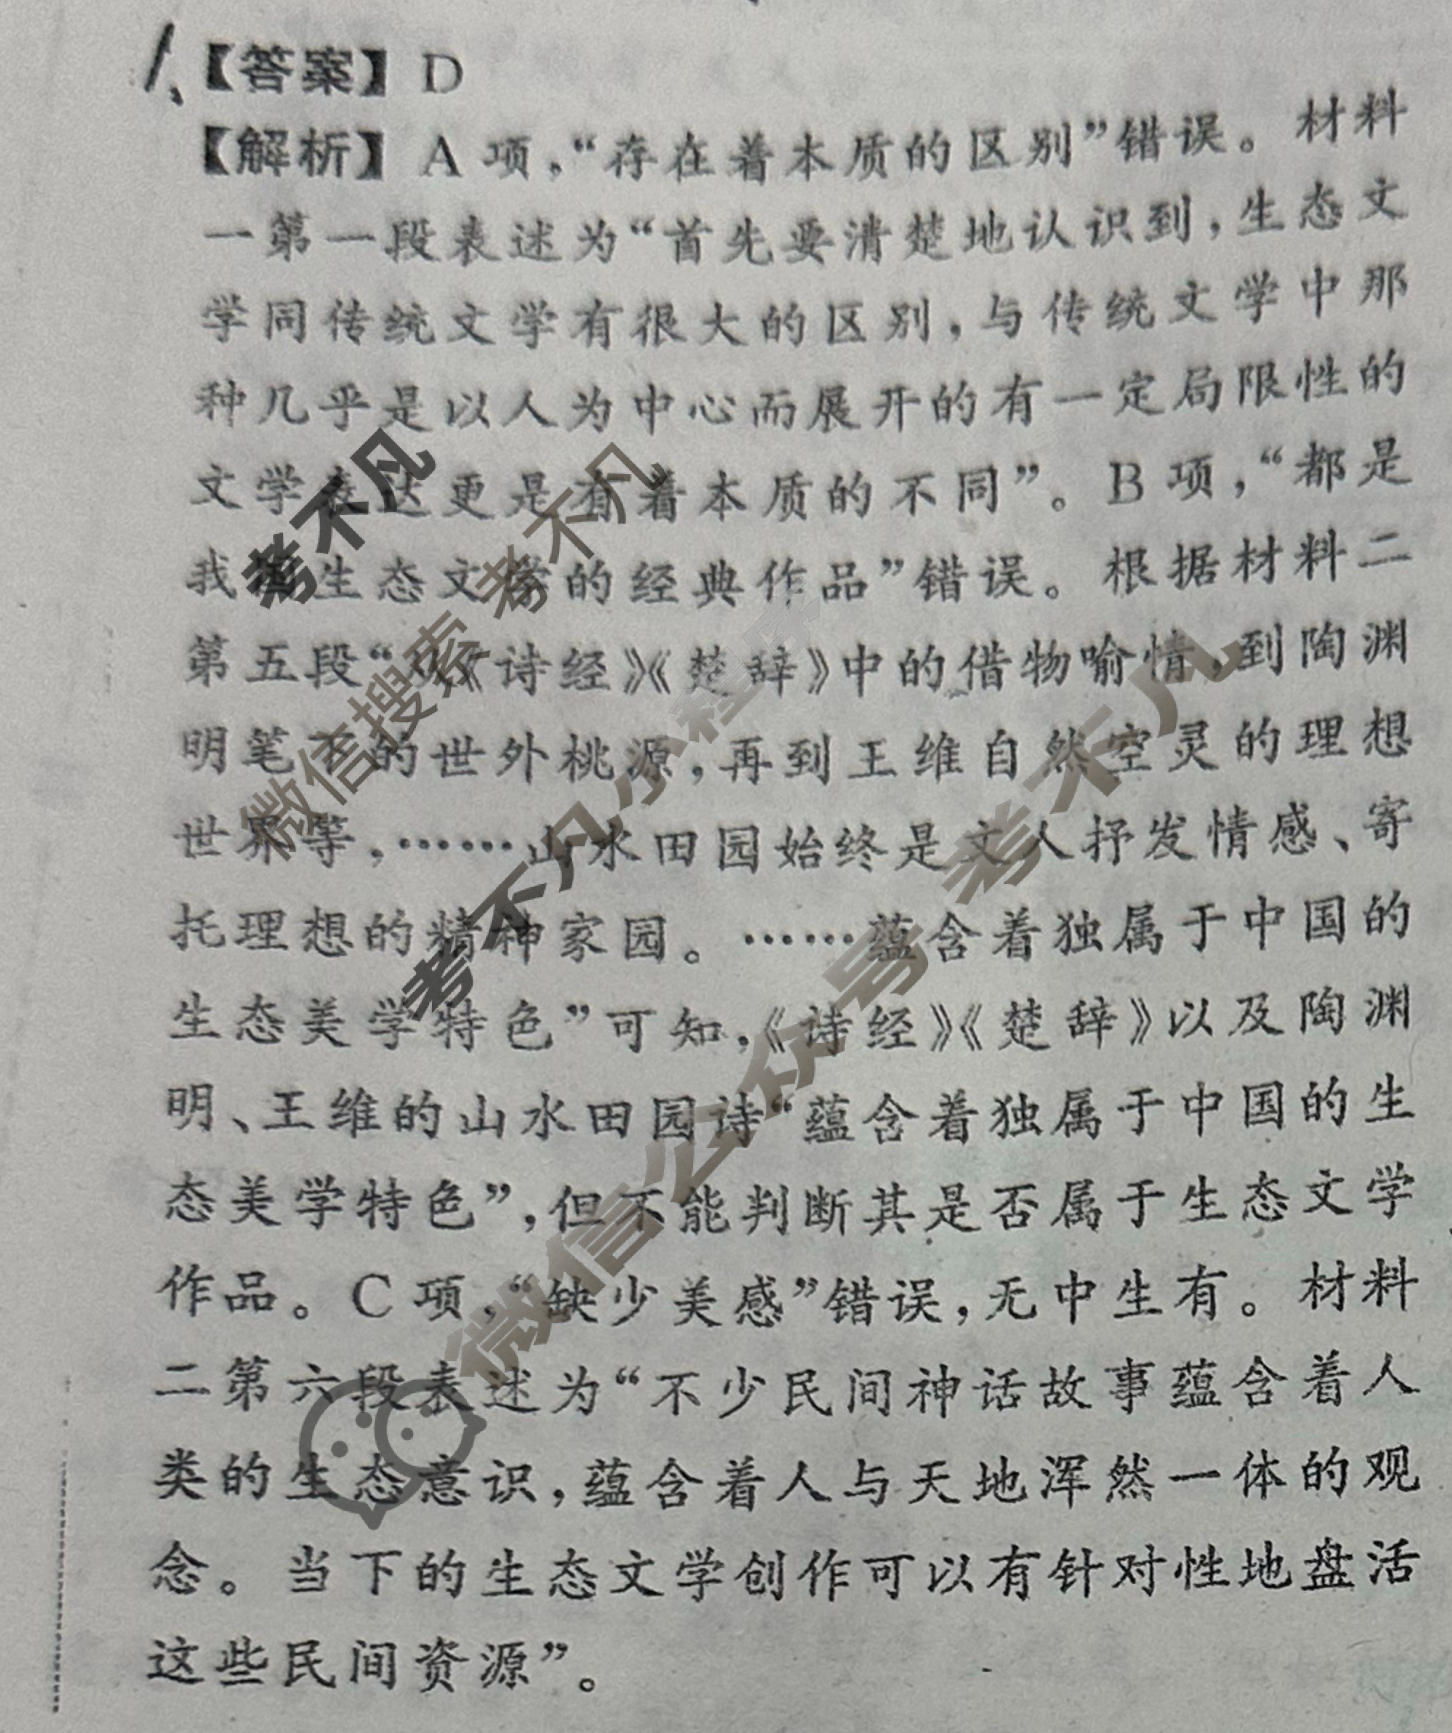 1、【答案】D
【解析】A 项，“存在着本质的区别”错误。材料
一第一段表述为“首先要清楚地认识到，生态文
学同传统文学有很大的区别，与传统文学中那
种几乎是以人为中心而展开的有一定局限性的
文学表达更是有着本质的不同”。B 项，“都是
我国生态文学的经典作品”错误。根据材料二
第五段“从《诗经》《楚辞》中的借物喻情，到陶渊
明笔下的世外桃源，再到王维自然空灵的理想
世界等，……山水田园始终是文人抒发情感、寄
托理想的精神家园。……蕴含着独属于中国的
生态美学特色”可知，《诗经》《楚辞》以及陶渊
明、王维的山水田园诗“蕴含着独属于中国的生
态美学特色”，但不能判断其是否属于生态文学
作品。C 项，“缺少美感”错误，无中生有。材料
二第六段表述为“不少民间神话故事蕴含着人
类的生态意识，蕴含着人与天地浑然一体的观
念。当下的生态文学创作可以有针对性地盘活
这些民间资源”。
考不凡
微信搜索 考不凡
考不凡小程序
微信公众号 考不凡